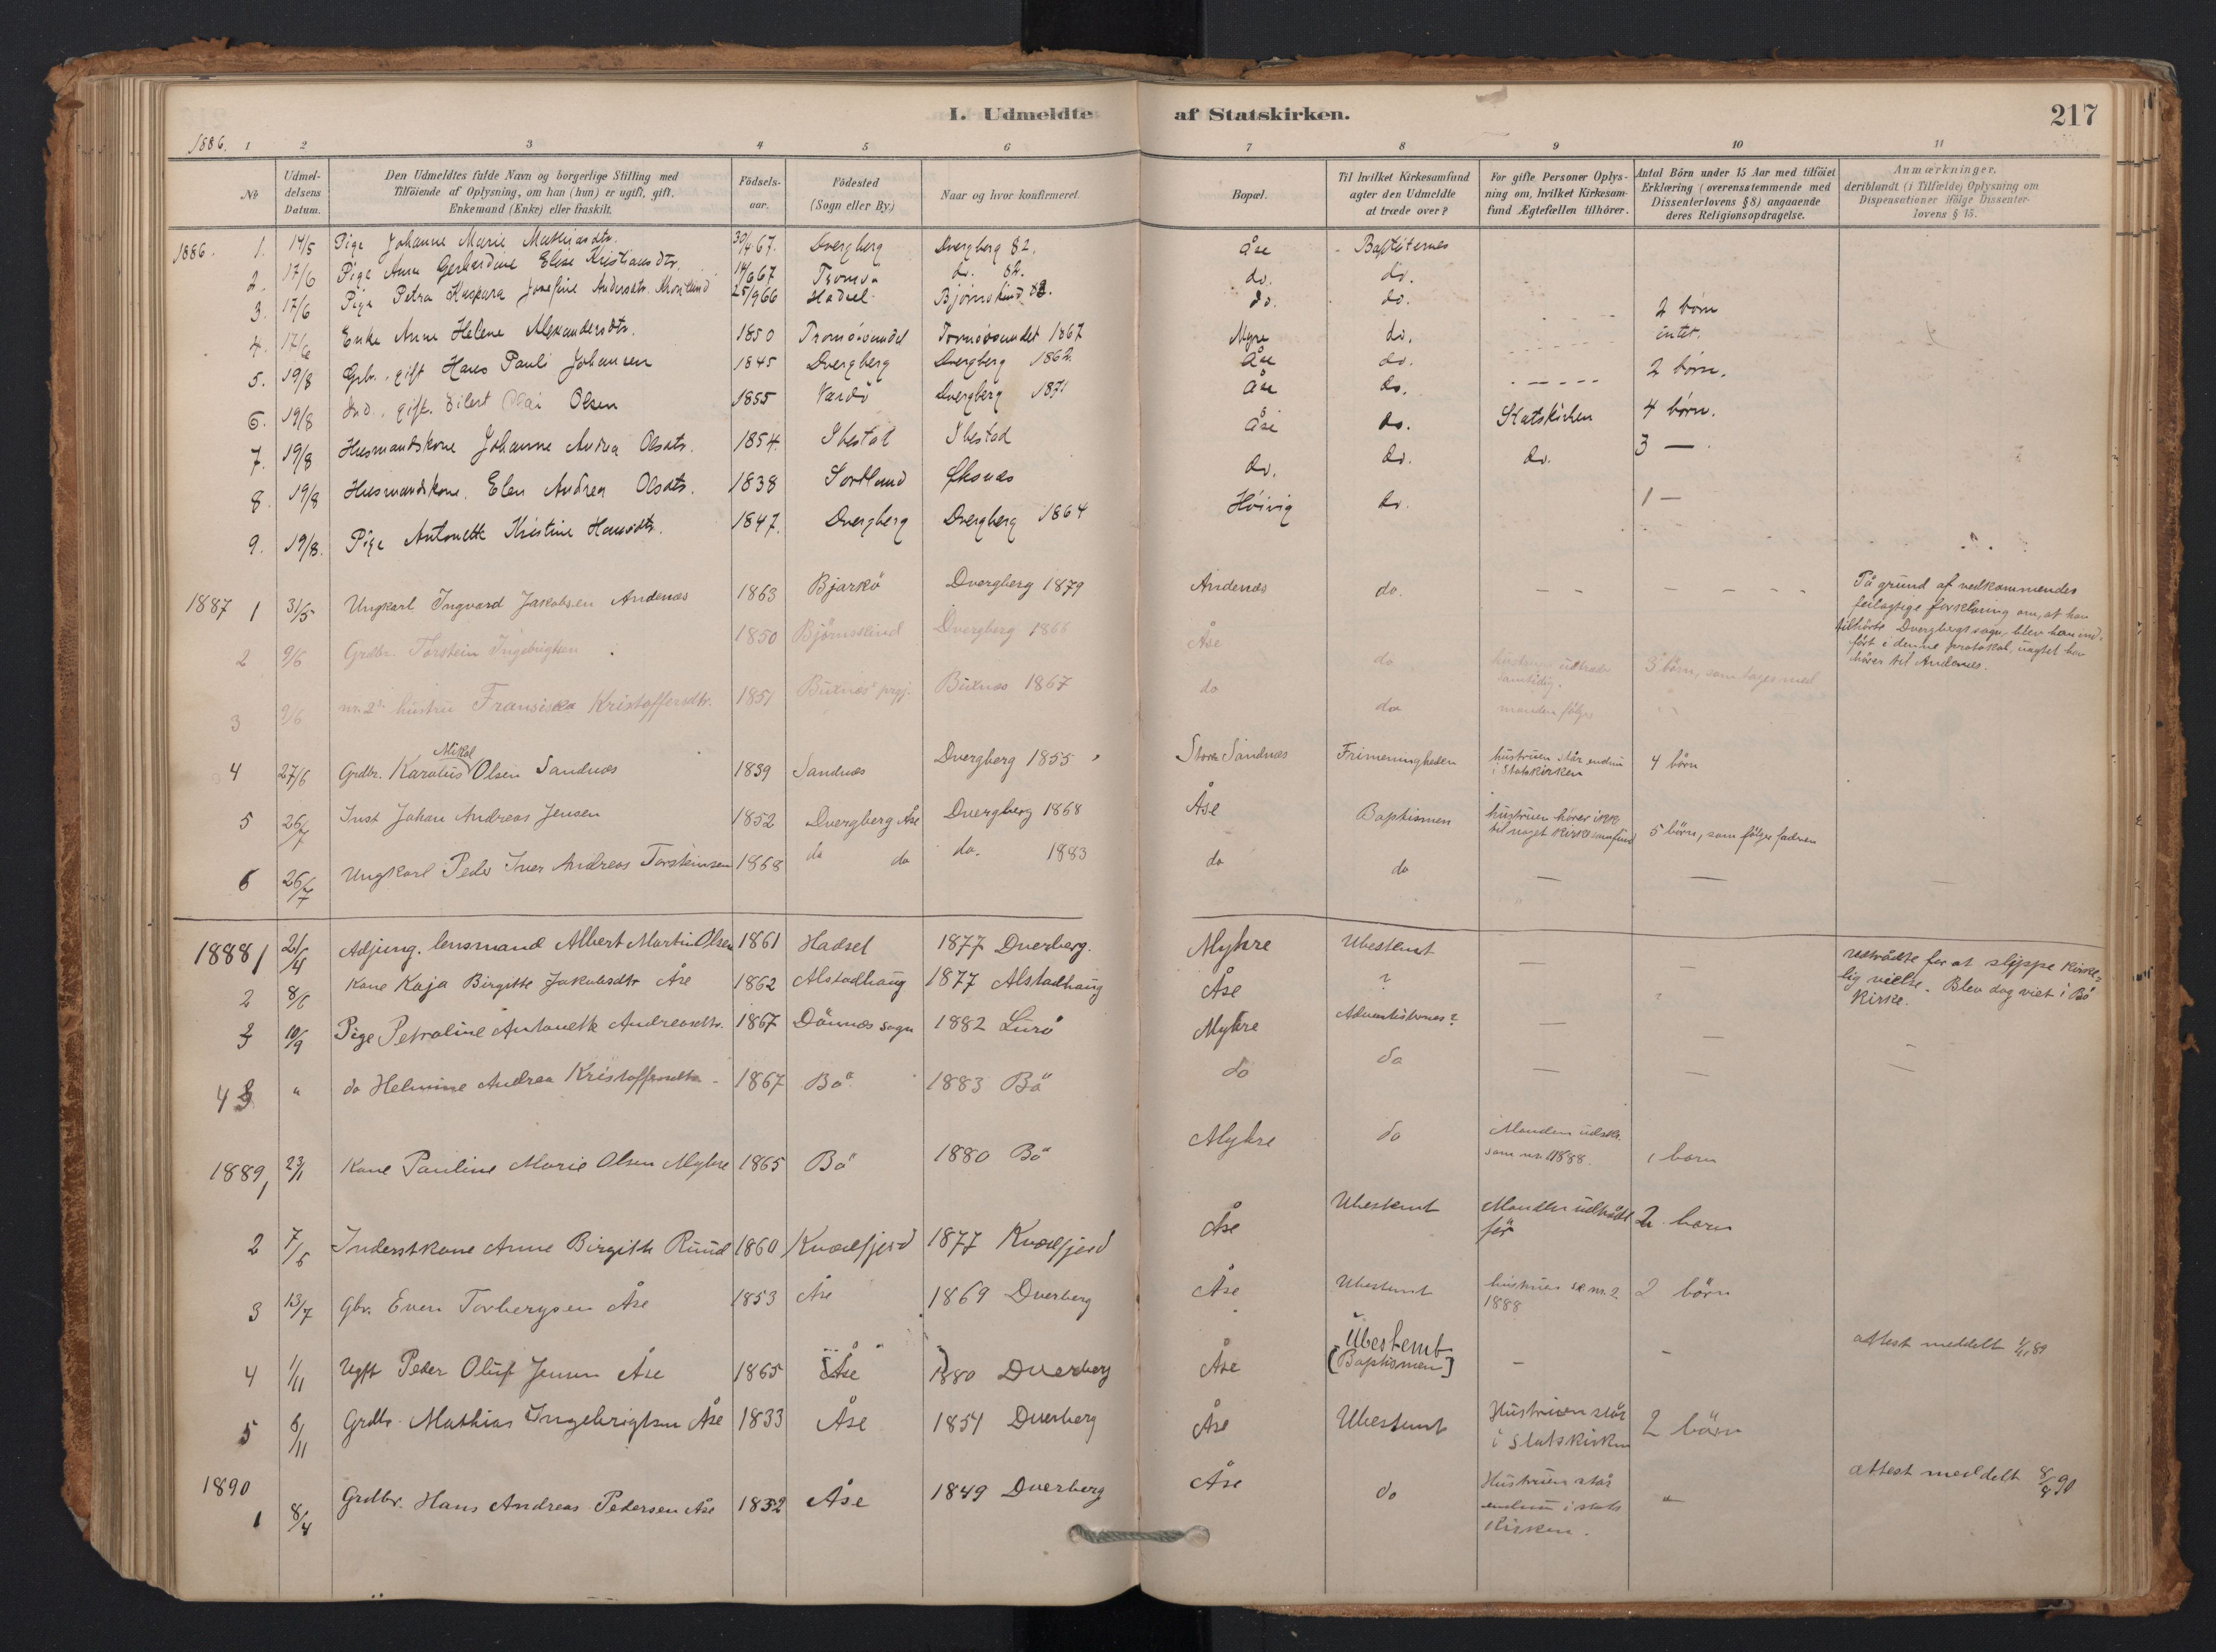 I. Udmeldte af Statskirken. 217
1886. 1 2 3 4 5 6 7 8 9 10 11
No
Udmeldelsens Datum.
Den Udmeldtes fulde Navn og borgerlige Stilling med Tilföiende af Oplysning, om han (hun) er ugift, gift, Enkemand (Enke) eller fraskilt.
Födselsaar.
Födested (Sogn eller By)
Naar og hvor konfirmeret.
Bopæl.
Til hvilket Kirkesamfund agter den Udmeldte at træde over?
For gifte Personer Oplysning om, hvilket Kirkesamfund Ægtefællen tilhörer.
Antal Börn under 15 Aar med tilföiet Erklæring (overensstemmende med Dissenterlovens § 8) angaaende deres Religionsopdragelse.
Anmærkninger, deriblandt (i Tilfælde) Oplysning om Dispensationer ifölge Dissenterlovens § 15.
1886. 1. 14/5 Pige Johanne Marie Mathiasdtr. 30/4 67. Dvergberg Dvergberg 82. Åse Baptisternes
2. 17/6 Pige Anna Gerhardine Elise Kristiansdtr. 14/6 67 Tromsö do. 82. do. do.
3. 17/6 Pige Petra Kaspara Josefine Andersdtr. 25/9 66 Hadsel Bjørnskind 82. do. do.
4. 17/6 Enke Anne Helene Alexandersdtr. 1850 Tromsösundet Tromsösundet 1867 Myre do. 2 börn
5. 19/8 Grbr. gift Hans Pauli Johansen 1845 Dvergberg Dvergberg 1862. Åse do. intet.
6. 19/8 Ind. gift. Eilert Olai Olsen 1855 Vardö Dvergberg 1871 Åse do. 2 börn.
7. 19/8 Husmandskone Johanne Andrea Olsdtr. 1854. Ibestad Ibestad Åse do. Statskirken 4 börn.
8. 19/8 Husmandskone. Elen Andrea Olsdtr. 1838 Sortland Øksnes do. do. do. 3 —
9. 19/8. Pige Antonette Kristine Hansdtr. 1847. Dvergberg Dvergberg 1864 Höivig do. 1 —
1887 1 31/5 Ungkarl Ingvard Jakobsen Andenæs 1863 Bjarkö Dvergberg 1879 Andenæs do. — — — — På grund af vedkommendes
feilagtige forklaring om, at han
tilhörte Dvergbergs sogn, blev han ind-
fört i denne protokol, uagtet han
hörer til Andenes.
2 9/6 Grdbr. Torstein Ingebrigtsen 1850 Björnskind Dvergberg 1866 Åse do hustruen udtræder samtidig. 3 börn, som tages med
3 9/6 nr. 2s hustru Fransiska Kristoffersdtr. 1851 Buxnæs prgj. Buxnæs 1867 do do manden fölger "
4 27/6 Grdbr. Karolius Mikal Olsen Sandnæs 1839 Sandnæs Dvergberg 1855 Store Sandnæs Frimenigheden hustruen står endnu i Statskirken 4 börn
5 26/7 Inst Johan Andreas Jensen 1852 Dvergberg Åse Dvergberg 1868 Åse Baptismen hustruen hörer ikke til noget kirkesamfund 5 börn, som fölger faderen
6 26/7 Ungkarl Peder Iver Andreas Torsteinsen 1868 do do do. 1883 do do — — —
1888 1 21/4 Adjung. lensmand Albert Martin Olsen 1861 Hadsel 1877 Dverberg. Myhre Ubestemt — — udtrådte for at slippe kirke-
lig vielse. Blev dog viet i Bö
Kirke.
2 8/6 Kone Kaja Birgitte Jakobsdtr Åse 1862 Alstadhaug 1877 Alstadhaug Åse ?
3 10/9 Pige Petroline Antonette Andreasdtr. 1867 Dönnæs sogn 1882 Lurö Myhre Adventisternes? — — —
4 " do Helmine Andrea Kristoffersdtr 1867 Bö 1883 Bö do do — — —
1889 1 23/1 Kone Pauline Marie Olsen Myhre 1865 Bö 1880 Bö Myhre do Manden udskr. som nr. 1 1888. 1 barn
2 7/6 Inderstkone Anne Birgitte Ruud 1860 Kvædfjord 1877 Kvædfjord Åse Ubestemt Manden udtrådt för 2 barn
3 13/7 Gbr. Even Torbergsen Åse 1853 Åse 1869 Dverberg Åse Ubestemt hustruen se nr. 2 1888 2 börn
4 1/11 Ugift Peder Oluf Jensen Åse 1865 Åse 1880 Dverberg Åse Ubestemt [Baptismen] — — attest meddelt 1/11 89
5 6/11 Grdbr. Mathias Ingebrigtsen Åse 1833 Åse 1851 Dverberg Åse Ubestemt Hustruen står i Statskirken 2 börn
1890 1 8/4 Grdbr. Hans Andreas Pedersen Åse 1832 Åse 1849 Dverberg Åse do Hustruen står endnu i stats kirken. " attest meddelt 8/8 90